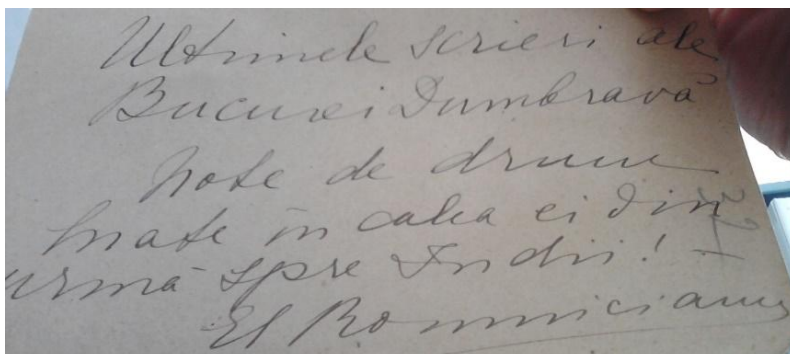 Ultimele scrieri ale
Bucurei Dumbravă
Note de drum
luate în calea ei din
urmă spre Indii! -
El Romnicianu